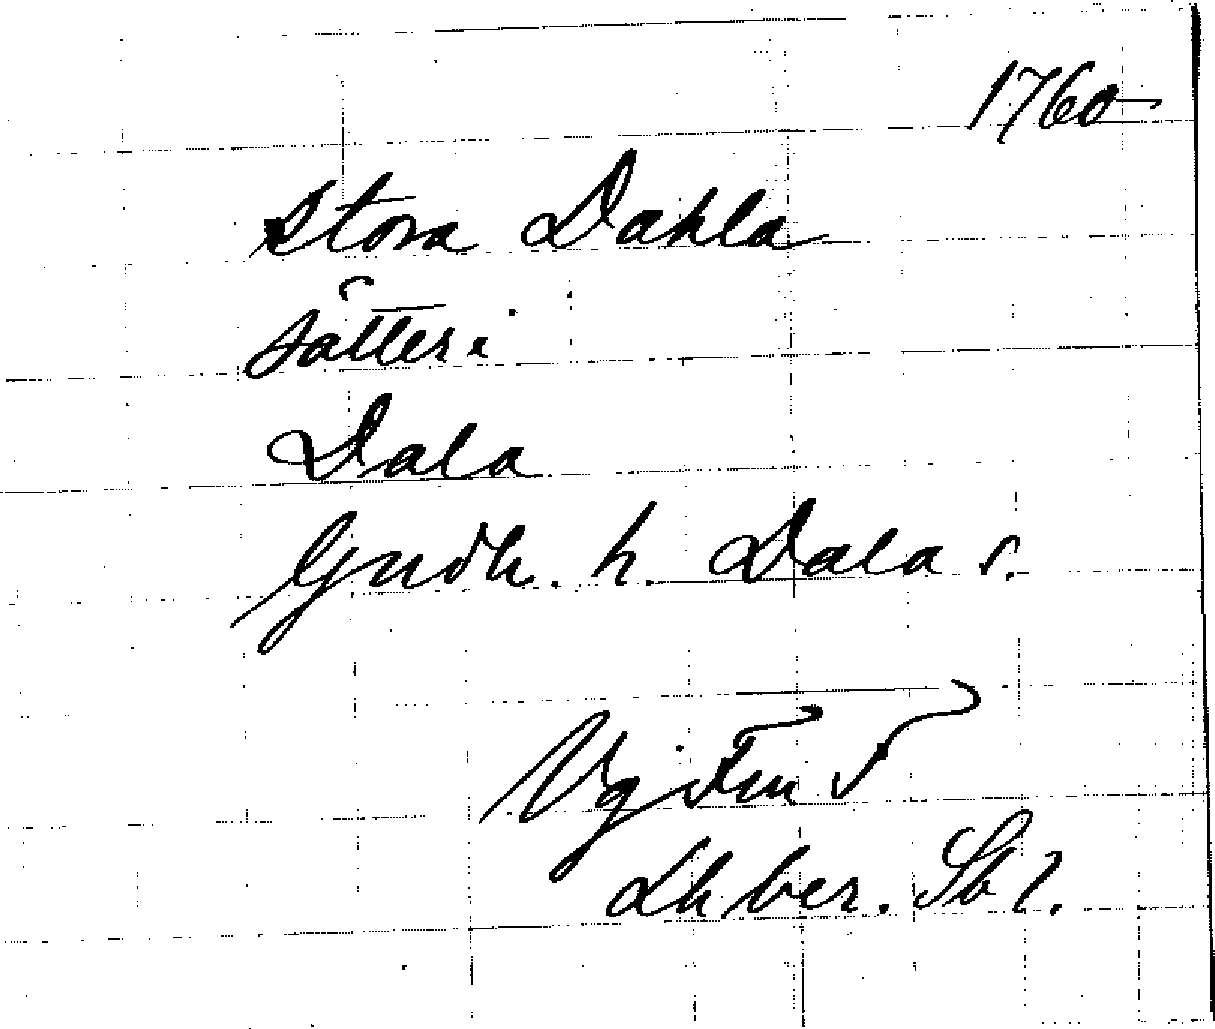 1760
Stora Dahla
säteri
Dala
Gudh. h. Dala s.
Vg Fru 5
Lh ber. Sb 2.